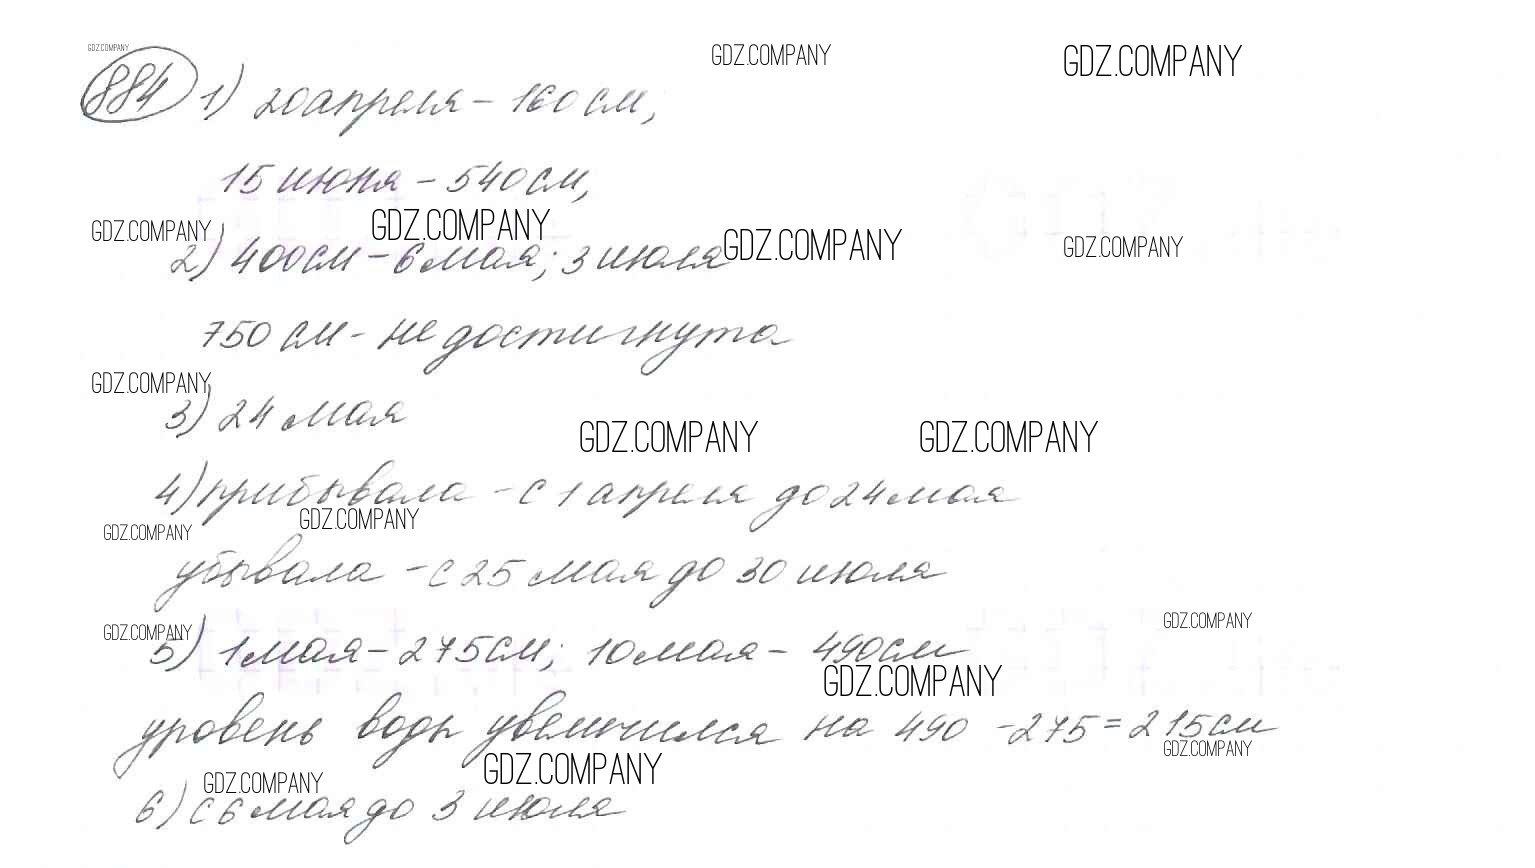 GDZ.COMPANY GDZ.COMPANY GDZ.COMPANY
884 1) 20 апреля - 160 см,
15 июня - 540 см,
GDZ.COMPANY GDZ.COMPANY GDZ.COMPANY GDZ.COMPANY
2) 400 см - 6 мая; 3 июля
750 см - не достигнута
GDZ.COMPANY
3) 24 мая
GDZ.COMPANY GDZ.COMPANY
4) прибывала - с 1 апреля до 24 мая
GDZ.COMPANY GDZ.COMPANY
убывала - с 25 мая до 30 июля
GDZ.COMPANY GDZ.COMPANY
5) 1 мая - 275 см; 10 мая - 490 см
GDZ.COMPANY
уровень воды увеличился на 490 - 275 = 215 см
GDZ.COMPANY GDZ.COMPANY GDZ.COMPANY
6) с 6 мая до 3 июля